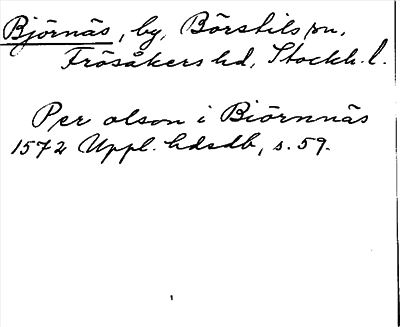 Björnäs, by, Börstils sn,
Frösåkers hd, Stockh. l.
Per olson i Biörnnäs
1572 Uppl. hdsdb, s. 59.